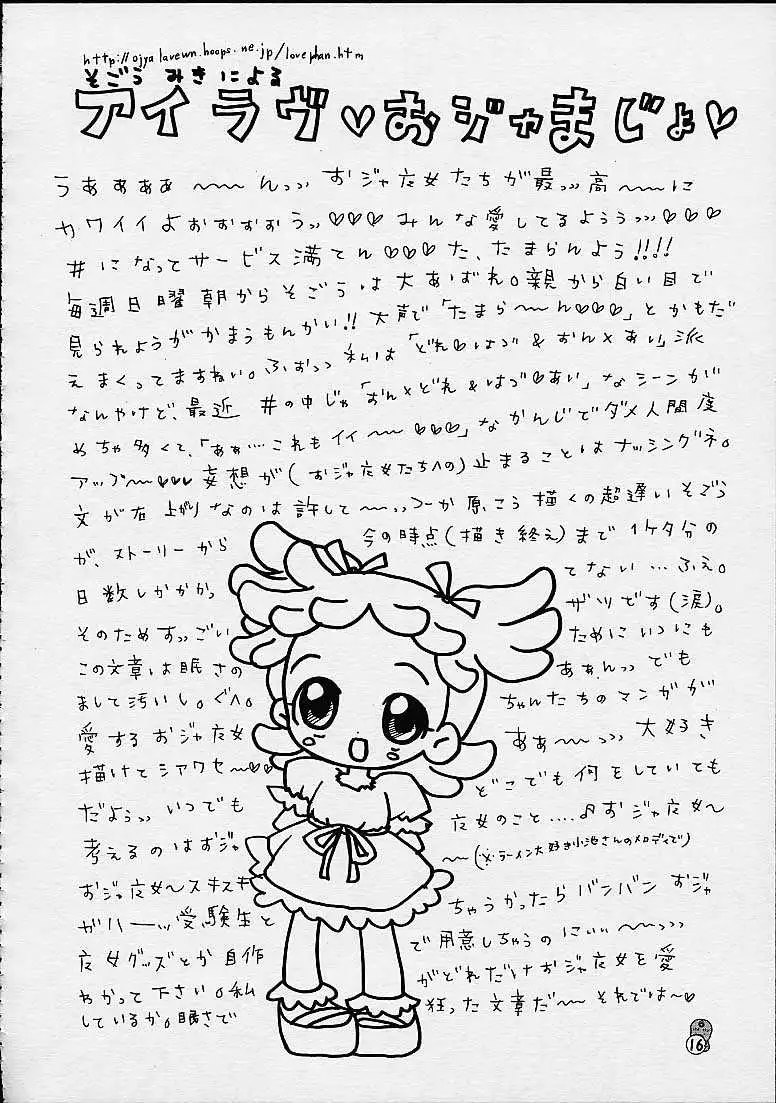 http://ojyalavewn.hoops.ne.jp/lovephan.htm
そごう みきによる
アイラヴ♡おジャまじょ♡
うあぁぁぁぁ〜〜〜んっっ おジャ魔女たちが最っっ高〜〜〜に
カワイイよおぉぉぉぉうっっ♡♡♡ みんな愛してるよぅぅっっっ♡♡♡
#になってサービス満てん♡♡♡た、たまらんよう!!!!
毎週日曜朝からそごうは大あばれ。親から白い目で
見られようがかまうもんかい!! 大声で「たまら〜〜ん♡♡♡」とかもだ
えまくってますねい。ふぉっっ 私は「どれ♡はづ&おん×あい」派
なんやけど、最近 #の中じゃ「おん×どれ&はづ♡あい」なシーンが
めちゃ多くて、「あぁ…これもイイ〜〜♡♡♡」なかんじでダメ人間度
アップ〜〜♡♡♡妄想が(おジャ魔女たちへの)止まることはナッシングネ。
文が右上がりなのは許して〜〜っっつーか原こう描くの超遅いそごう
が、ストーリーから 今の時点(描き終え)まで1ケタ分の
日数しかかかっ てない…ふえ。
そのためすっごい ザツです(涙)。
この文章は眠さの ためにいつにも
まして汚いし。ぐへ。 あぁんっっ でも
愛するおジャ魔女 ちゃんたちのマンガが
描けてシアワセ〜♡♡ あぁ〜〜っっっ 大好き
だよぅっっ いつでも どこでも何をしていても
考えるのはおジャ 魔女のこと‥‥♪おジャ魔女〜
おジャ魔女〜スキスキ 〜〜(※ラーメン大好き小池さんのメロディで)
がハーッッ受験生と ちゃうかったらバンバン おジャ
魔女グッズとか自作 で用意しちゃうのにぃぃ〜〜っっっ
わかって下さい。私 がどれだけおジャ魔女を愛
しているか。眠さで 狂った文章だ〜〜 それでは〜♡
16